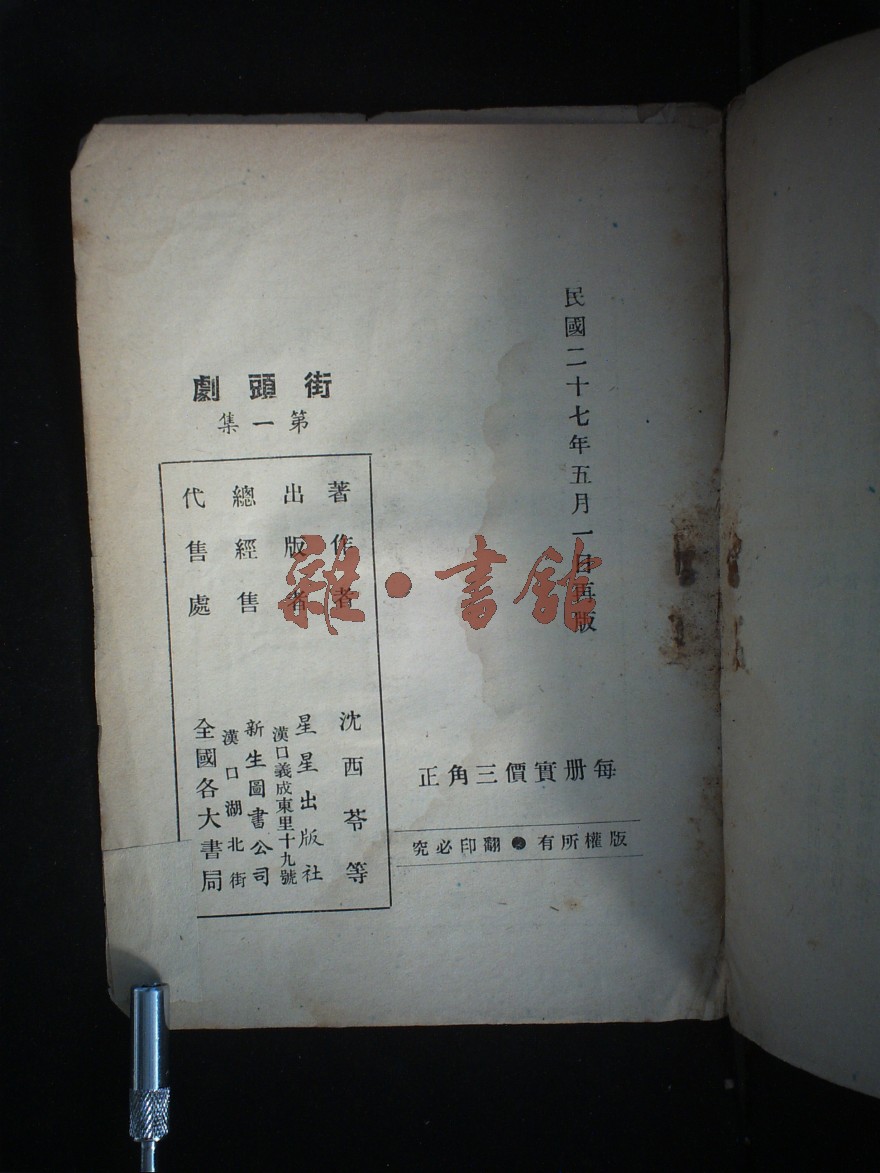 民國二十七年五月一日再版
每册實價三角正
版權所有●翻印必究
街頭劇
第一集
著作者 沈西苓等
出版者 星星出版社
漢口義成東里十九號
總經售 新生圖書公司
漢口湖北街
代售處 全國各大書局
雜·書館